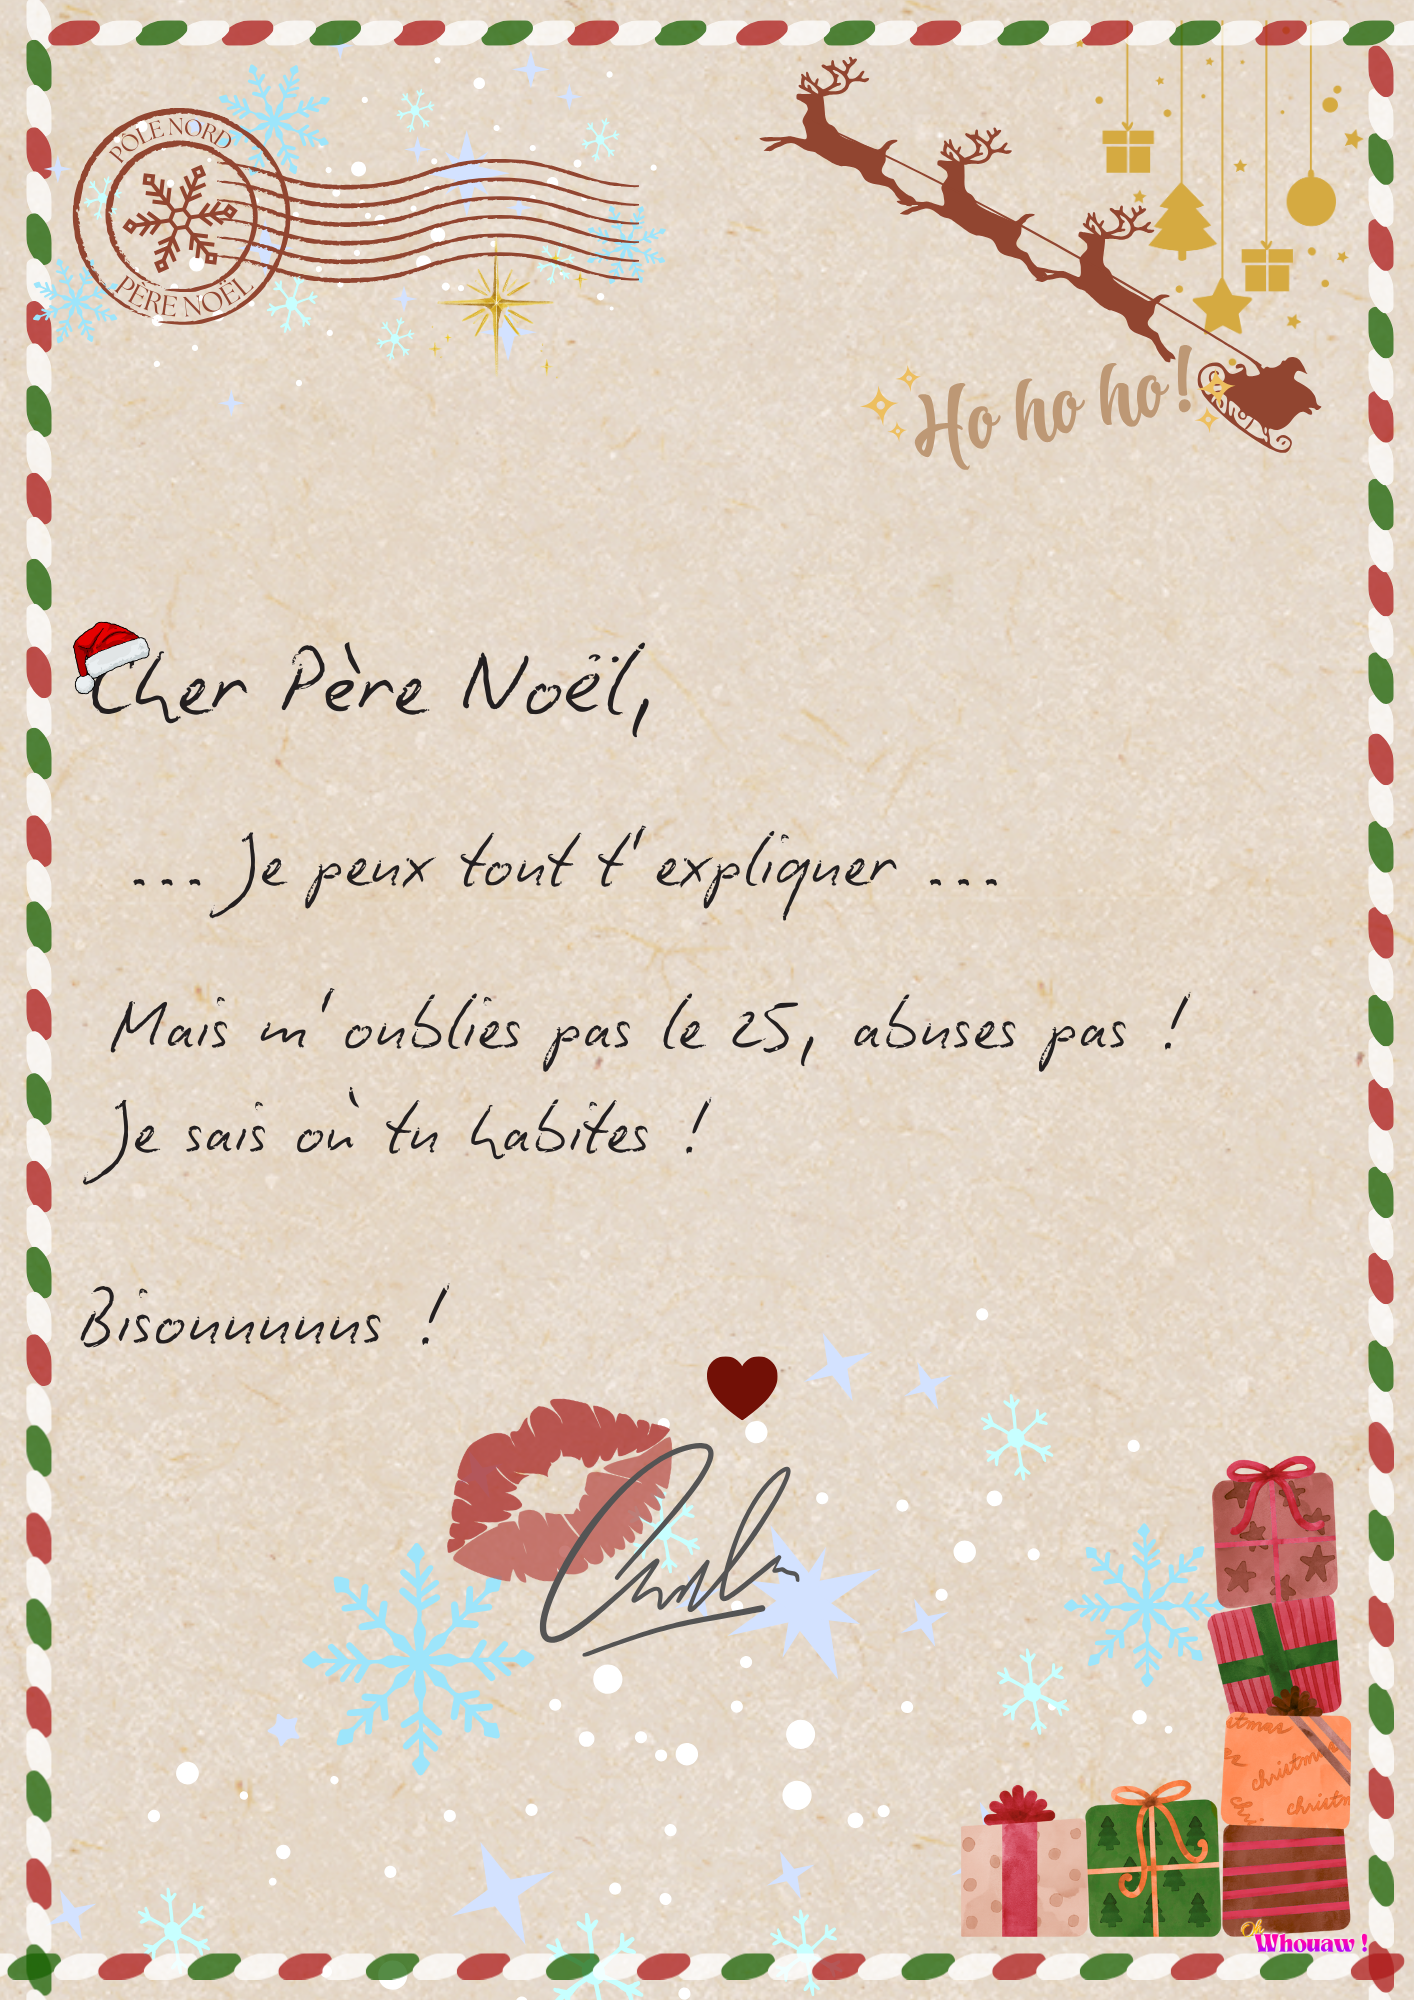 PÔLE NORD
PÈRE NOËL
Ho ho ho!
Cher Père Noël,
... Je peux tout t'expliquer ...
Mais m'oublies pas le 25, abuses pas !
Je sais où tu habites !
Bisouuuuuus !
christmas
christmas
christm
Oh
Whouaw !